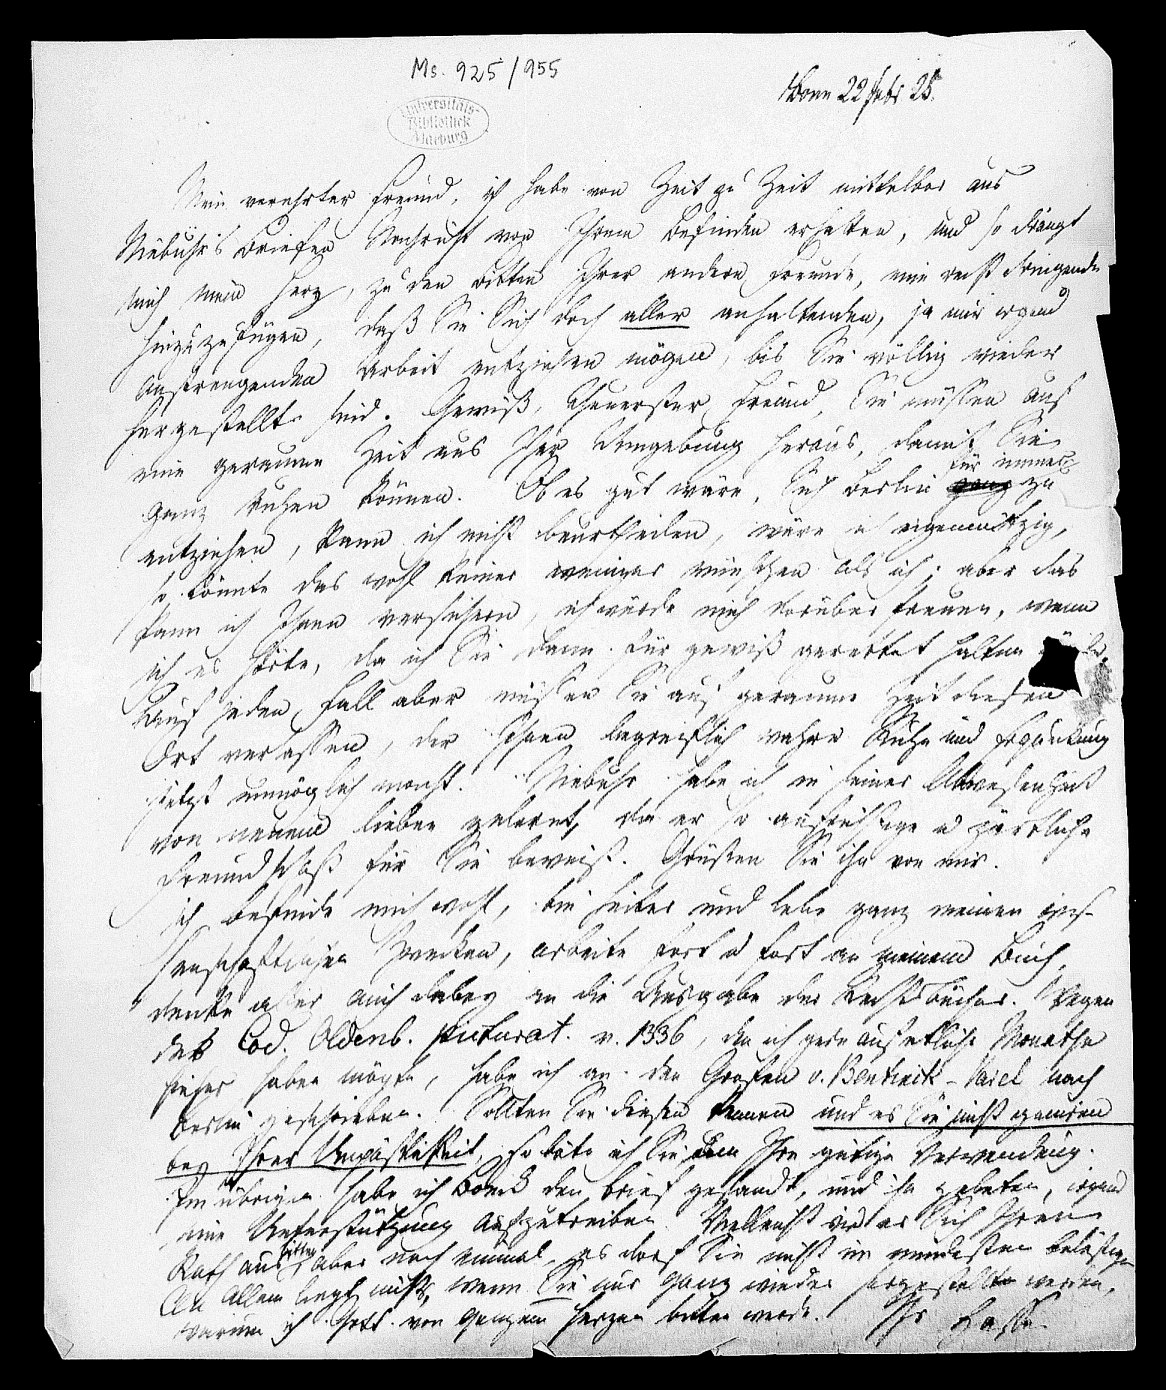 Ms. 925/955
Universitäts-
Bibliothek
Marburg
Bonn 22 Febr 25.
Mein verehrter Freund, ich habe von Zeit zu Zeit mittelbar aus
Niebuhr's Briefen Nachricht von Ihrem Befinden erhalten, und so drängt
mich mein Herz, zu den Bitten Ihrer andern Freunde, eine recht dringende
hinzuzufügen, daß Sie Sich doch aller anhaltenden, ja nur irgend
anstrengenden Arbeit entziehen mögen, bis Sie völlig wieder
hergestellt sind. Gewiß, theuerster Freund, Sie müssen auf
eine geraume Zeit aus Ihrer Umgebung heraus, damit Sie
ganz ruhen können. Ob es gut wäre, Sich Berlin für immer zu
entziehen, kann ich nicht beurtheilen, wäre ich eigennützig,
so könnte das wohl keiner weniger wünschen als ich; aber das
kann ich Ihnen versichern, ich würde mich darüber freuen, wenn
ich es hörte, da ich Sie dann für gewiß gerettet halten
Auf jeden Fall aber müssen Sie auf geraume Zeit diesen
Ort verlassen der Ihnen begreiflich wahre Ruhe und Erquickung
selbst unmöglich macht. Niebuhr habe ich in seiner Abwesenheit
von neuem lieben gelernt, da er so aufrichtige u zärtliche
Freundschaft für Sie beweist. Grüßen Sie ihn von mir.
Ich befinde mich wohl, bin heiter und lebe ganz meinen wis-
senschaftlichen Zwecken, arbeite fort u fort an meinem Buch,
denke aber auch dabey an die Ausgabe der Rechtsbücher. Wegen
des Cod. Oldenb. picturat. v. 1336, den ich gern auf etliche Monathe
hieher haben möchte, habe ich an den Grafen v. Bentinck-Varel nach
Berlin geschrieben. Sollten Sie diesen kennen und es Sie nicht geniren
bey Ihrer Unpäßlichkeit, so bäte ich Sie um Ihre gütige Verwendung.
Im übrigen habe ich den Brief gesandt, und ihn gebeten, irgend
eine Unterstützung aufzutreiben. Vielleicht wird er Sich Ihren
Rath ausbitten, aber noch einmal, es darf Sie nicht im mindesten belästigen
An Allem liegt nichts, wenn Sie nur ganz wieder hergestellt werden,
warum ich Gott von ganzem Herzen bitten werde. Ihr Hasse.